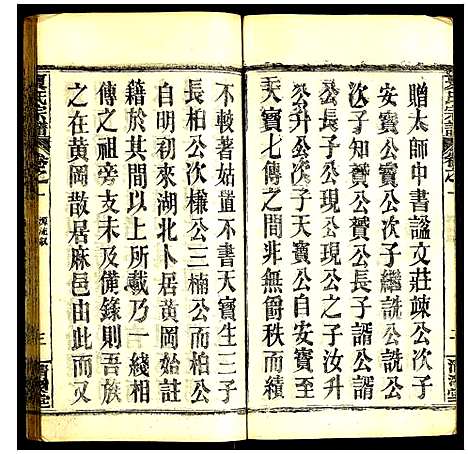 贈太師中書謚文莊竦公次子
安寶公寶公次子繼詵公詵公
次子知贇公贇公長子諝公諝
公長子公現公現公之子汝升
公升公次子天寶公自安寶至
天寶七傳之間非無爵秩勲績
不較著姑置不書天寶生三子
長柏公次槺公三楠公而柏公
自明初來湖北卜居黃岡始註
籍於其間以上所載乃一綫相
傳之祖旁支未及僃錄則吾族
之在黃岡散居麻邑由此而又
夏氏宗譜
卷之一
三